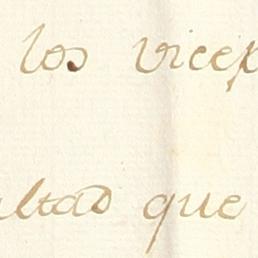 los vicep
ultad que